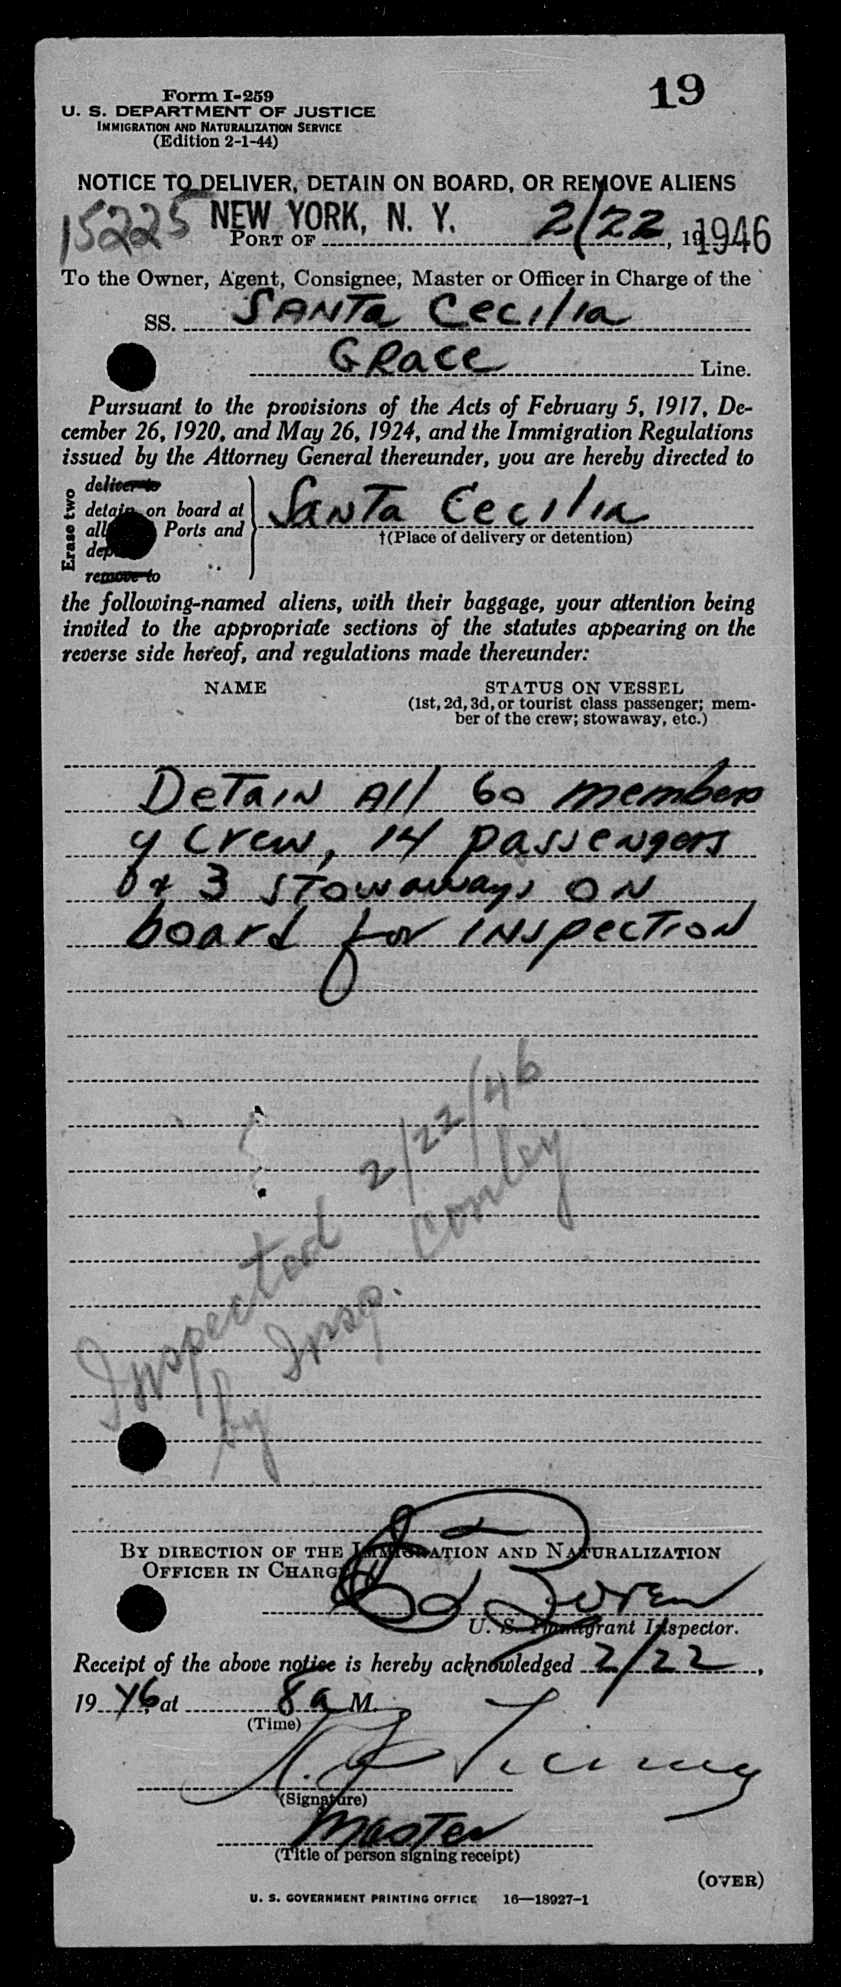 19
Form I-259
U. S. DEPARTMENT OF JUSTICE
IMMIGRATION AND NATURALIZATION SERVICE
(Edition 2-1-44)
NOTICE TO DELIVER, DETAIN ON BOARD, OR REMOVE ALIENS
15225 NEW YORK, N. Y. 2/22 1946
PORT OF , 19
To the Owner, Agent, Consignee, Master or Officer in Charge of the
SS. Santa Cecilia
Grace Line.
Pursuant to the provisions of the Acts of February 5, 1917, De-
cember 26, 1920, and May 26, 1924, and the Immigration Regulations
issued by the Attorney General thereunder, you are hereby directed to
Erase two
deliver to
detain on board at
all Ports and
remove to
Santa Cecilia
†(Place of delivery or detention)
the following-named aliens, with their baggage, your attention being
invited to the appropriate sections of the statutes appearing on the
reverse side hereof, and regulations made thereunder:
NAME STATUS ON VESSEL
(1st, 2d, 3d, or tourist class passenger; mem-
ber of the crew; stowaway, etc.)
Detain All 60 members
of Crew, 14 passengers
& 3 stowaways on
board for inspection
Inspected 2/22/46
by Insp. Conley
BY DIRECTION OF THE IMMIGRATION AND NATURALIZATION
OFFICER IN CHARGE
U. S. Immigrant Inspector.
Receipt of the above notice is hereby acknowledged 2/22,
1946, at 8 a M.
(Time)
(Signature)
Master
(Title of person signing receipt)
(OVER)
U. S. GOVERNMENT PRINTING OFFICE 16—18927-1